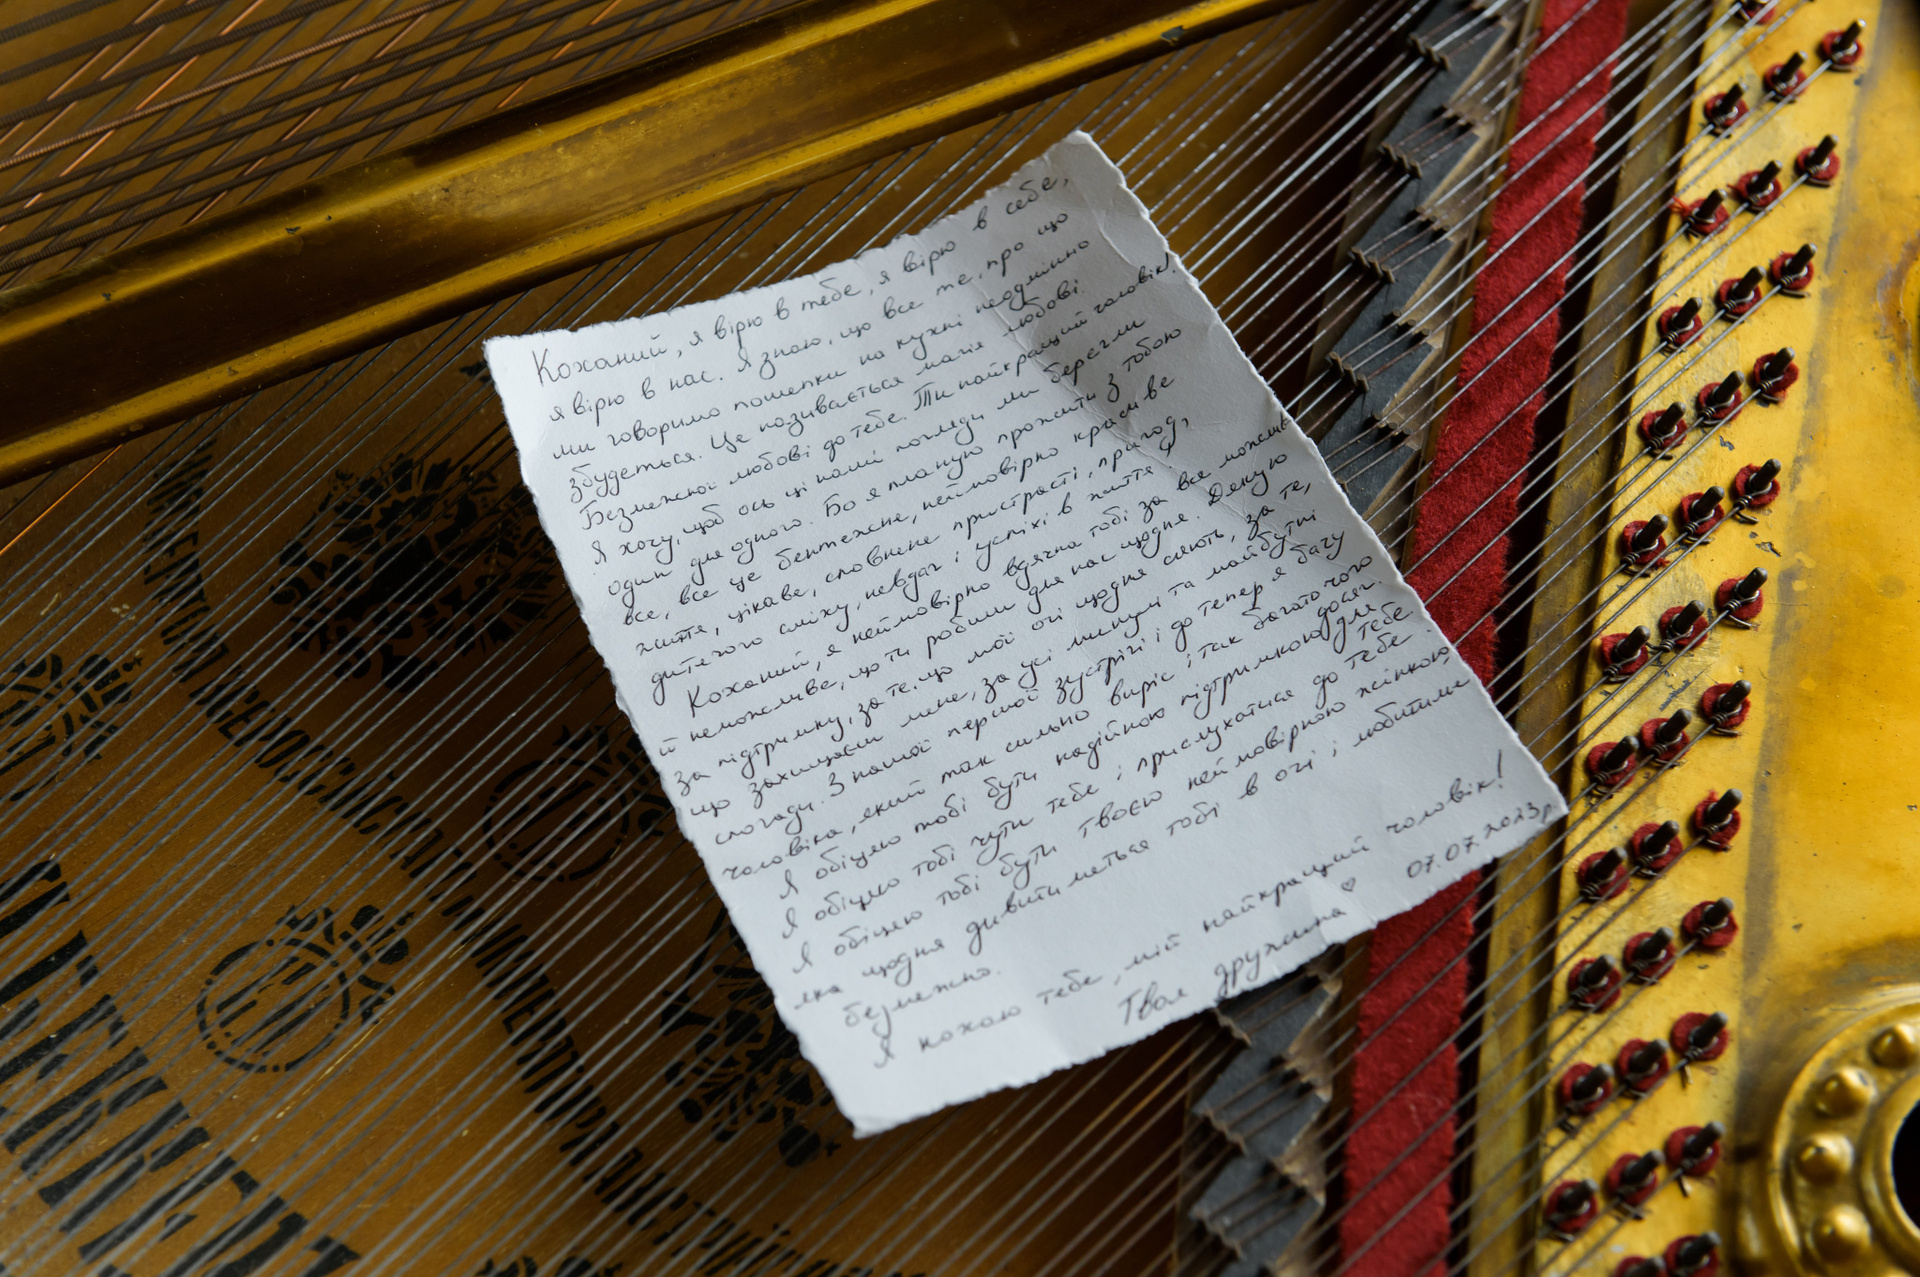 Коханий, я вірю в тебе, я вірю в себе,
я вірю в нас. Я знаю, що все те, про що
ми говоримо пошепки на кухні неодмінно
збудеться. Це називається магія любові.
Безмежної любові до тебе. Ти найкращий чоловік!
Я хочу, щоб ось ці наші погляди ми берегли
один для одного. Бо я планую прожити з тобою
все, все це бентежне, неймовірно красиве
життя, цікаве, сповнене пристрасті, пригод,
дитячого сміху, невдач і успіхів в життя
Коханий, я неймовірно вдячна тобі за все можливе
й неможливе, що ти робиш для нас щодня. Дякую
за підтримку, за те, що мої очі щодня сяють, за те,
що захищаєш мене, за усі минулі та майбутні
спогади. З нашої першої зустрічі і до тепер я бачу
чоловіка, який так сильно виріс і так багато чого досяг.
Я обіцяю тобі бути надійною підтримкою для тебе.
Я обіцяю тобі чути тебе і прислухатися до тебе.
Я обіцяю тобі бути твоєю неймовірною жінкою,
яка щодня дивитиметься тобі в очі і любитиме
безмежно.
Я кохаю тебе, мій найкращий чоловік!
Твоя дружина ♡ 07.07.2023р.